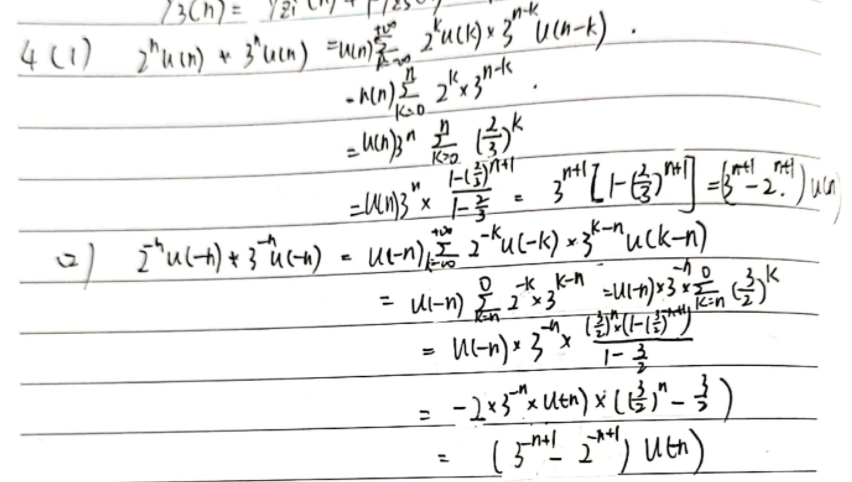 y3(n) = yzi(n) +
4 (1) 2^n u(n) * 3^n u(n) = u(n) \sum_{k=-∞}^{+∞} 2^k u(k) × 3^{n-k} u(n-k) .
= u(n) \sum_{k=0}^{n} 2^k × 3^{n-k} .
= u(n) 3^n \sum_{k=0}^{n} (\frac{2}{3})^k
= u(n) 3^n × \frac{1-(\frac{2}{3})^{n+1}}{1-\frac{2}{3}} = 3^{n+1} [1-(\frac{2}{3})^{n+1}] = (3^{n+1} - 2^{n+1}) u(n)
(2) 2^{-n} u(-n) * 3^{-n} u(-n) = u(-n) \sum_{k=-∞}^{+∞} 2^{-k} u(-k) × 3^{k-n} u(k-n)
= u(-n) \sum_{k=n}^{0} 2^{-k} × 3^{k-n} = u(-n) × 3^{-n} × \sum_{k=n}^{0} (\frac{3}{2})^k
= u(-n) × 3^{-n} × \frac{(\frac{3}{2})^n × (1-(\frac{3}{2})^{-n+1})}{1-\frac{3}{2}}
= -2 × 3^{-n} × u(-n) × ((\frac{3}{2})^n - \frac{3}{2})
= (3^{-n+1} - 2^{-n+1}) u(-n)